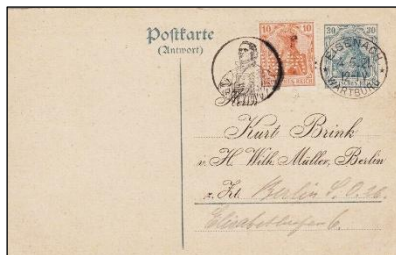 Postkarte
(Antwort)
10 10
30 30
EISENACH
WARTBURG
Kurt Brink
v. H. Wilh. Müller, Berlin
z. Zt. Berlin S. O. 26.
Elisabethufer 6.